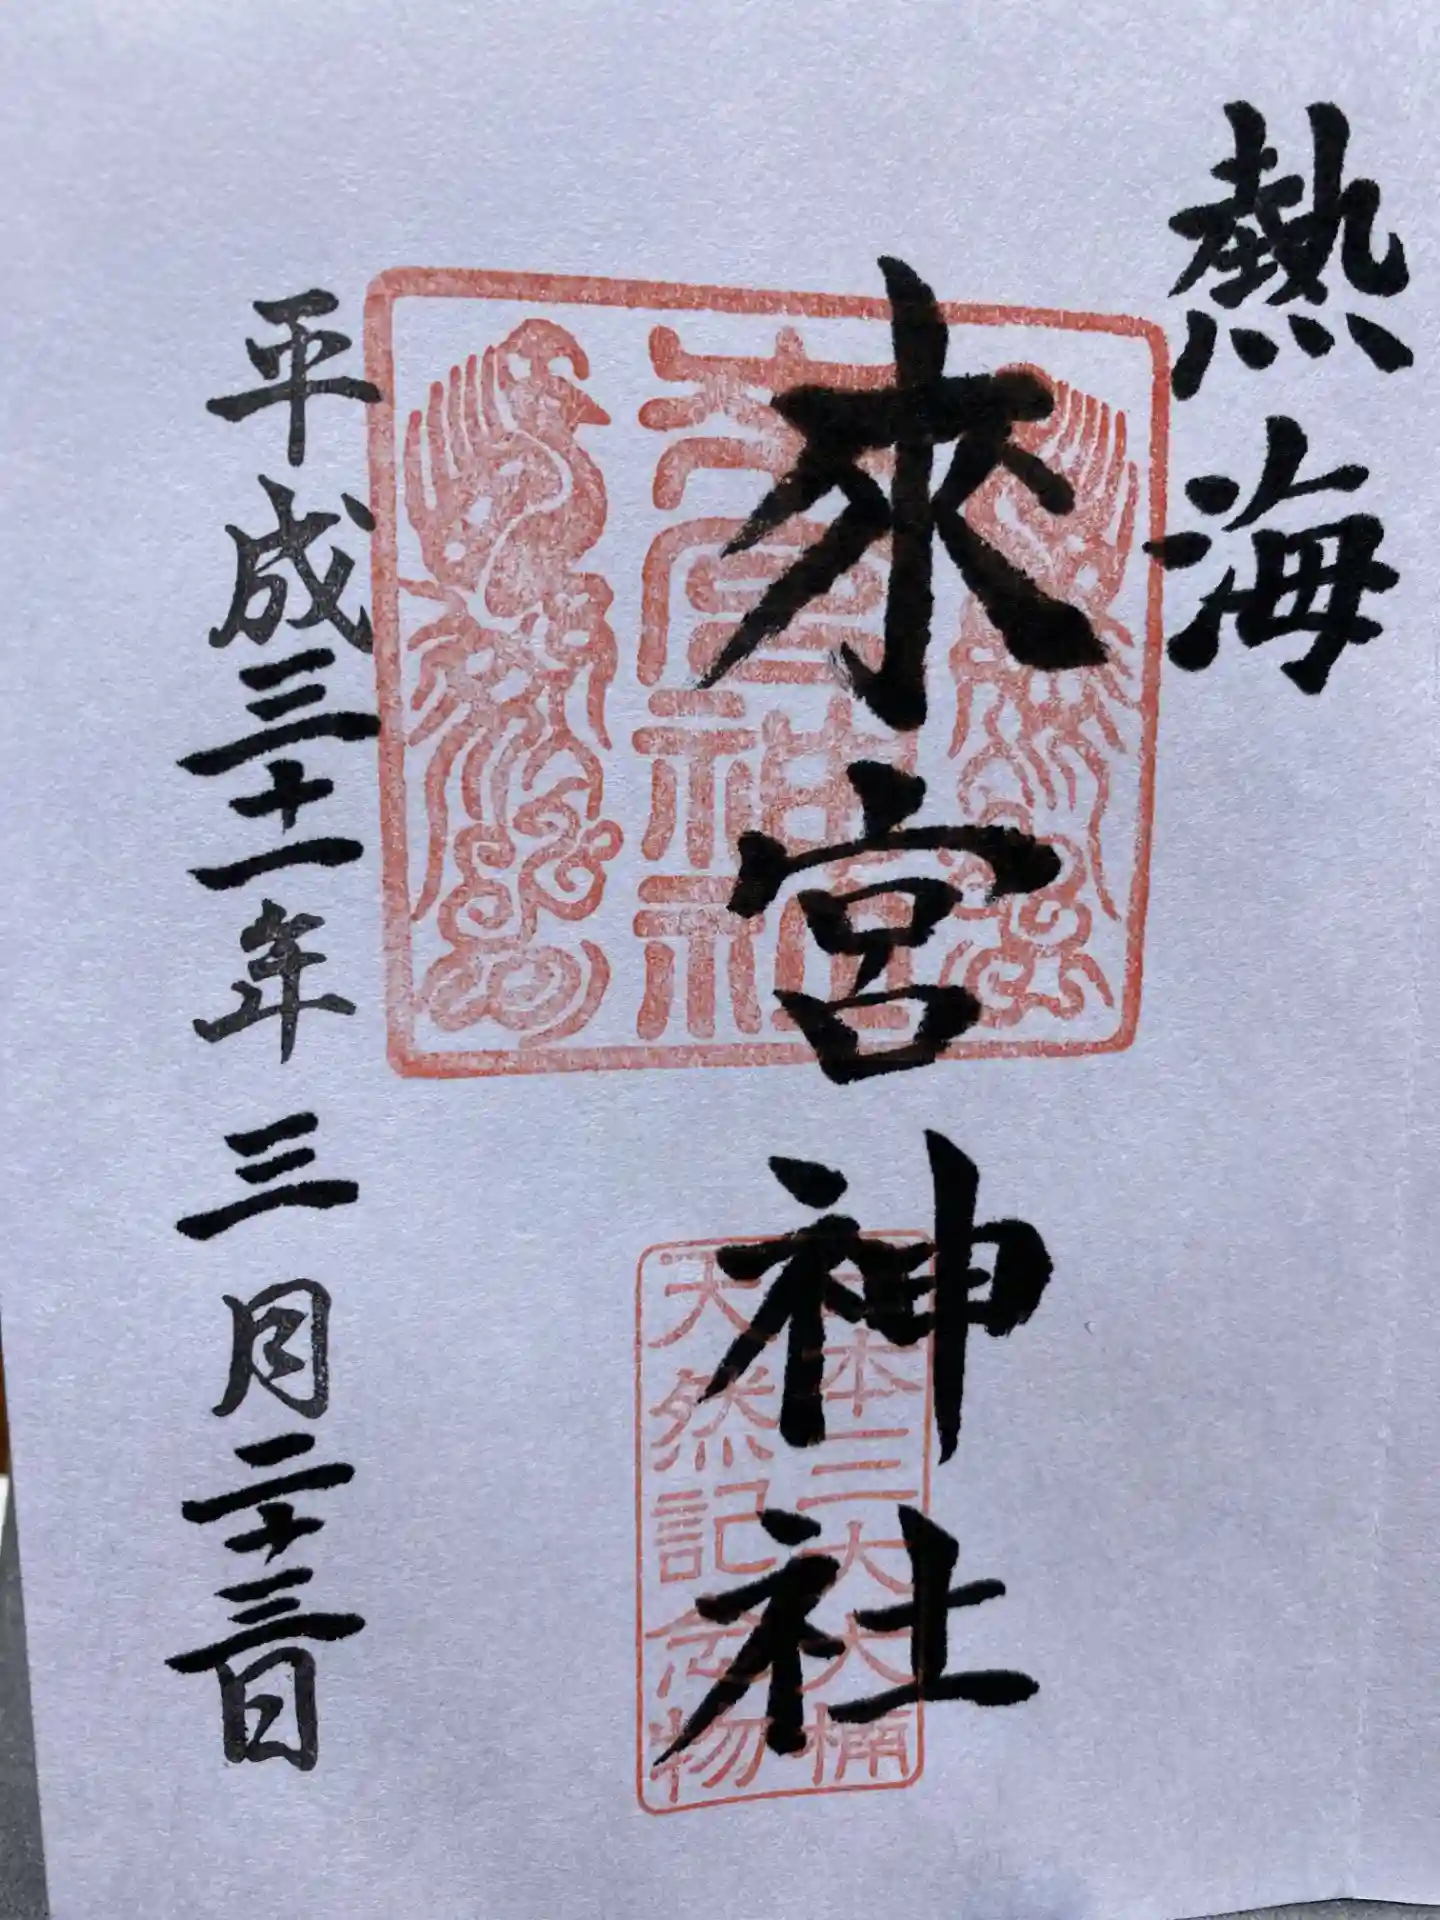 熱海
來宮神社
來宮神社
日本三大大楠
天然記念物
平成三十一年三月二十三日